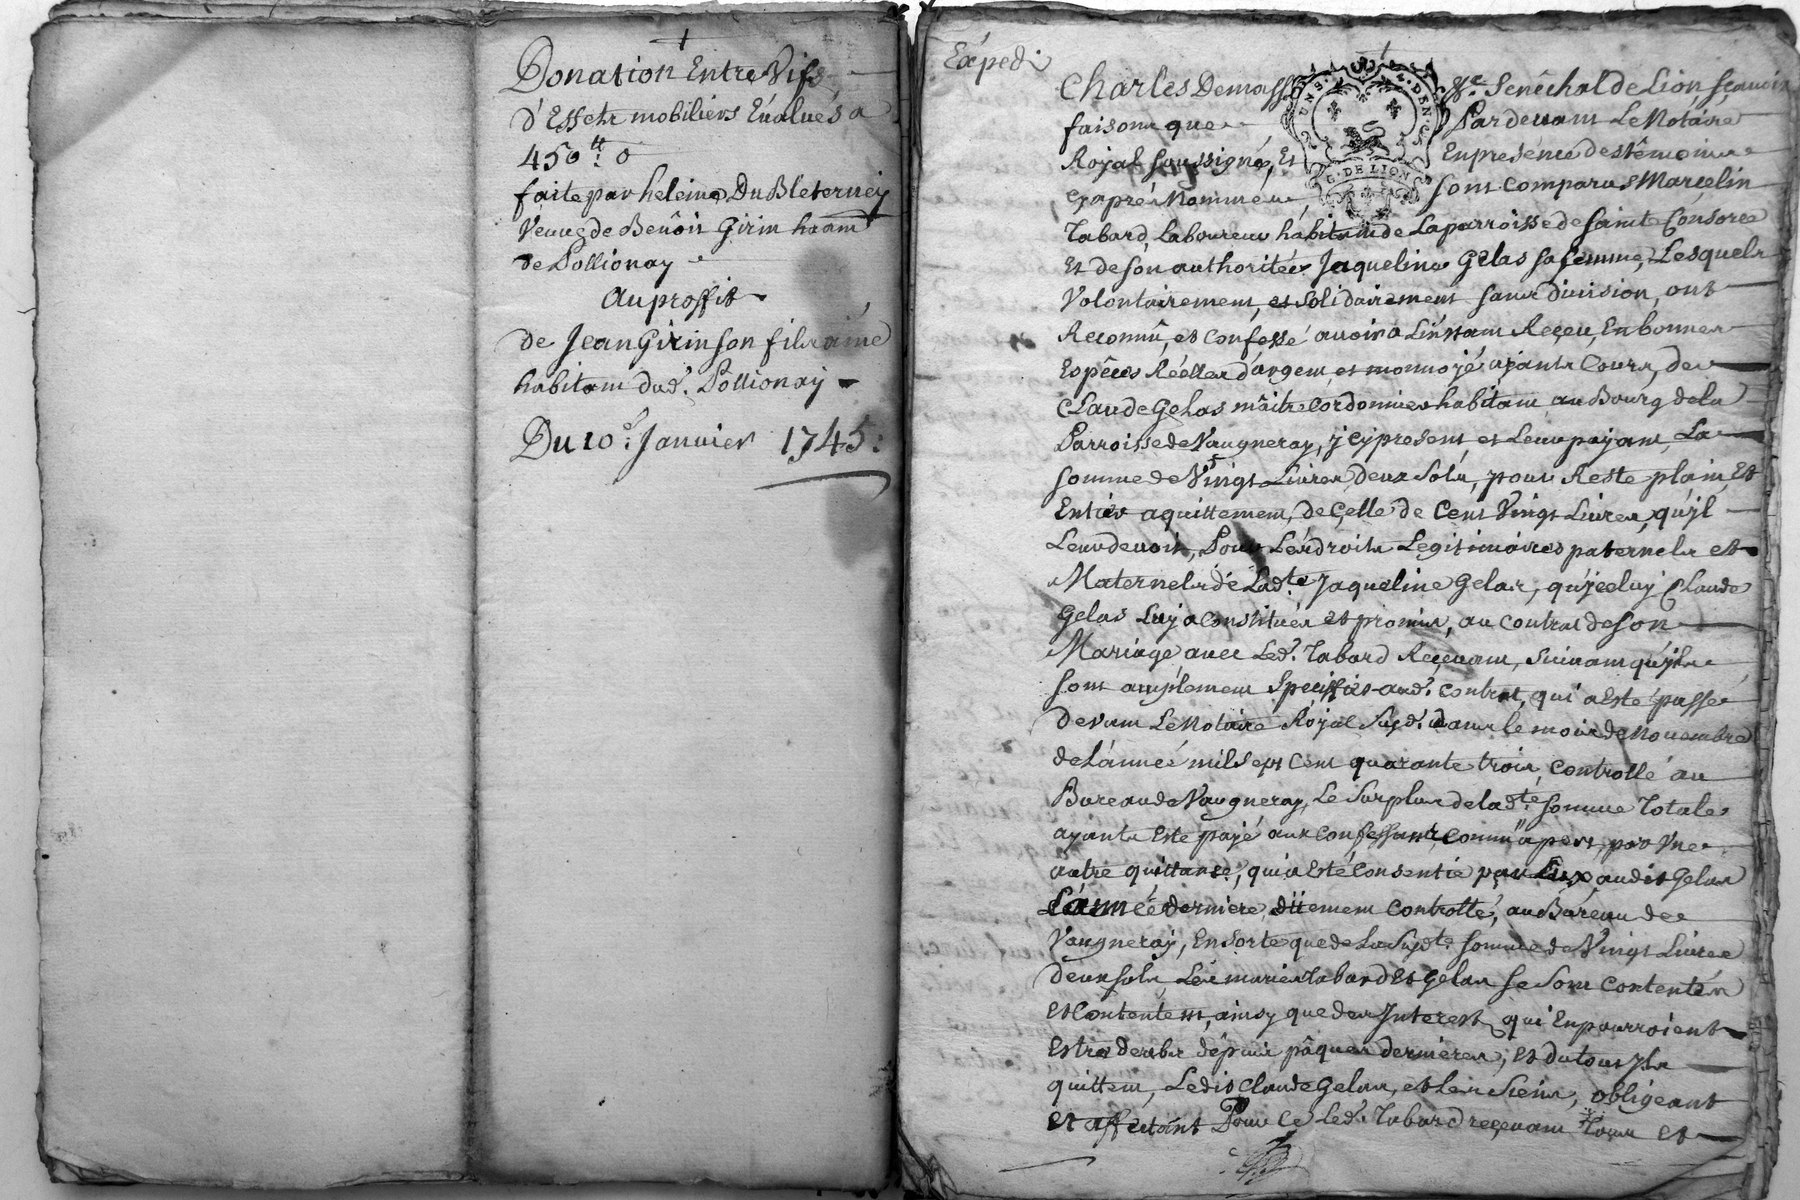 Donation Entre Vifs
d'Effets mobiliers Evalués a
450 ₶: 0
faite par heleine Du Bleterney
Veuve de Benôit Girin ham
de Pollionay
Au proffit
de Jean Girin son fils ainé
habitant dud. Pollionay
Du 10e. Janvier 1745:
Expedi
Charles Demasso Sr. Senêchal de Lion sçavoir
faisons que Pardevant Le Notaire
Royal soussigné, Et En presence des têmoins
cy après Nommés, sont comparus Marcelin
Tabard, Laboureur habitant de La parroisse de Sainte Consorce
Et de son authoritée Jaqueline Gelas sa femme, Lesquels
Volontairement, et solidairement sans division, ont
Reconnû, et confessé avoir a L'instant Reçeu, En bonnes
Espêces Réelles d'argent, et monnojé ajants cours, de
Claude Gelas mâitre cordonnier habitant au Bourg de la
Parroisse de Vaugneray, jcy present et Leur payant, La
somme de Vingt Livres deux sols, pour Reste plain, Et
Entier aquittement, de Celle de Cent Vingt Livres, qu'jl
Leur devoit, Pour Les droits Legitimaires paternels et
Maternels de Ladte. Jaqueline Gelas, qu'jceluy Claude
Gelas Luy a constitués et promis, au contrat de son
Mariage avec Led. Tabard Reçevant, suivant qu'jls
sont amplement speciffiés aud. contrat, qui a Esté passé
devant Le Notaire Royal susd. dans le mois de Novembre
de L'année mil sept cent quarante trois, controllé au
Bureau de Vaugneray, Le surplus de ladte. somme Totale
ayants Esté payé aux confessants, comm'a pert, par Vne
autre quittance, qui a Esté Consentie par Eux, audit Gelas
L'année derniere, düement controllé, au Bureau de
Vaugneray, En sorte que de La susdte. somme de Vingt Livres
deux sols, Les mariés Tabard Et Gelas se sont contentés
Et Contentent, ainsy que des Interests qui En pourroient
Estre deubs dépuis pâques dernieres, Et du tout jls
quittent, Ledit Claude Gelas, et les siens, obligeant
Et affectant Pour Ce Led. Tabard reçevant Tous et